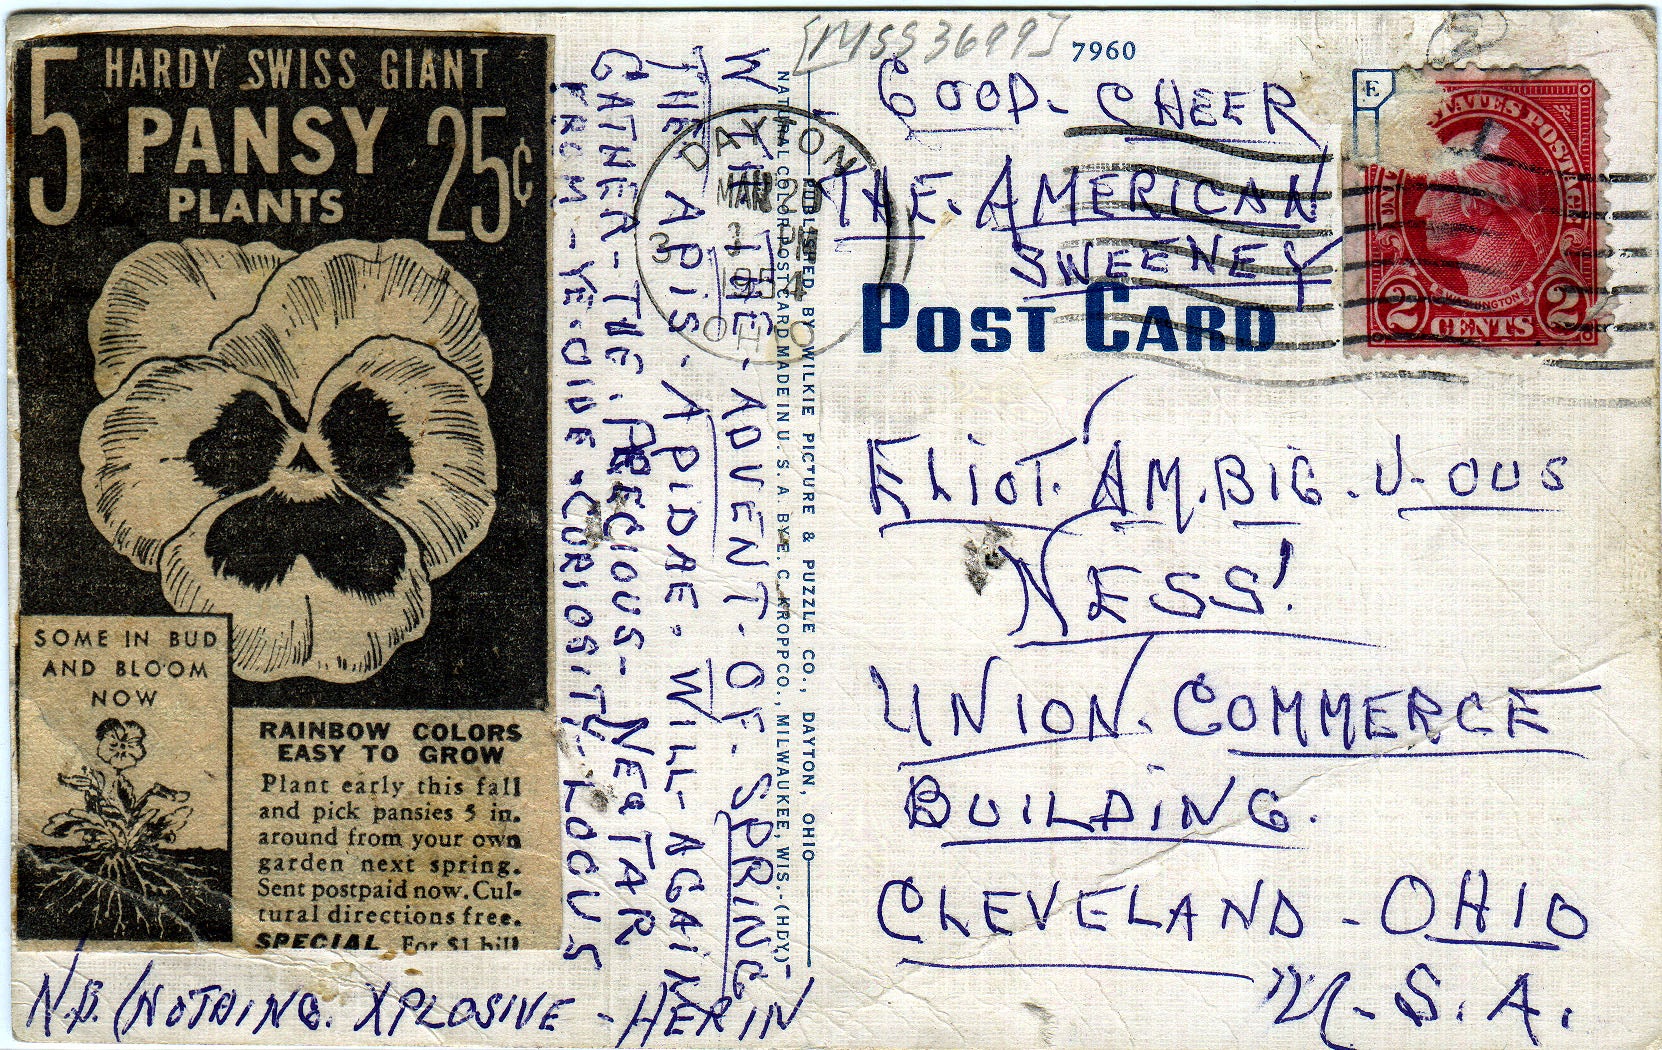 [MSS3699]
7960
2
GOOD-CHEER
THE. AMERICAN
SWEENEY
POST CARD
DAYTON
MAR 2
3 PM
1954
STATES POSTAGE
WASHINGTON
2 CENTS 2
ELIOT. AM.BIG.U-OUS
NESS!
UNION. COMMERCE
BUILDING.
CLEVELAND-OHIO
U.S.A.
PUBLISHED BY WILKIE PICTURE & PUZZLE CO., DAYTON, OHIO
NATURAL COLOR POST CARD MADE IN U. S. A. BY E. C. KROPP CO., MILWAUKEE, WIS.-(HDY)
WITH THE-ADVENT-OF. SPRING
THE APIS-APIDAE. WILL-AGAIN
GATHER-THE. PRECIOUS-NEQTAR
FROM-YE-OLDE-CURIOSITY-LOCUS
5 HARDY SWISS GIANT
PANSY
PLANTS
25¢
SOME IN BUD
AND BLOOM
NOW
RAINBOW COLORS
EASY TO GROW
Plant early this fall
and pick pansies 5 in.
around from your own
garden next spring.
Sent postpaid now. Cul-
tural directions free.
SPECIAL For $1 bill
N.B. (NOTHING. XPLOSIVE-HERIN